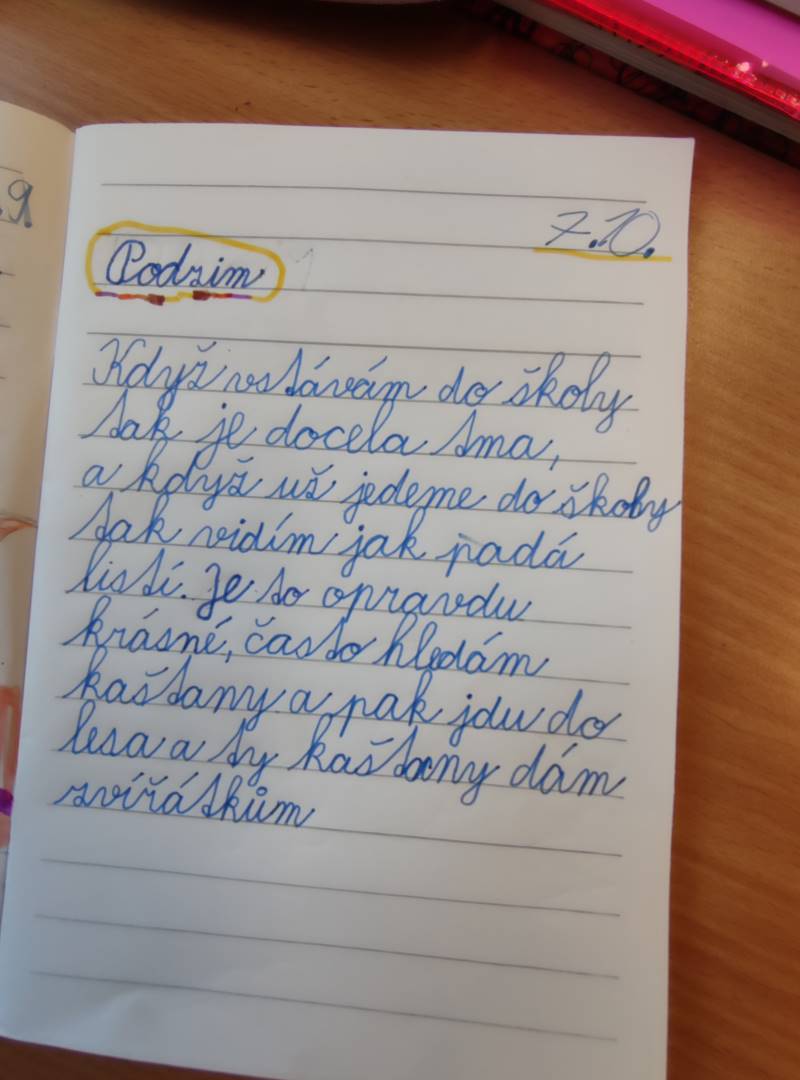 9.
7.10.
Podzim
Když vstávám do školy
tak je docela tma,
a když už jedeme do školy
tak vidím jak padá
listí. Je to opravdu
krásné, často hledám
kaštany a pak jdu do
lesa a ty kaštany dám
zvířátkům